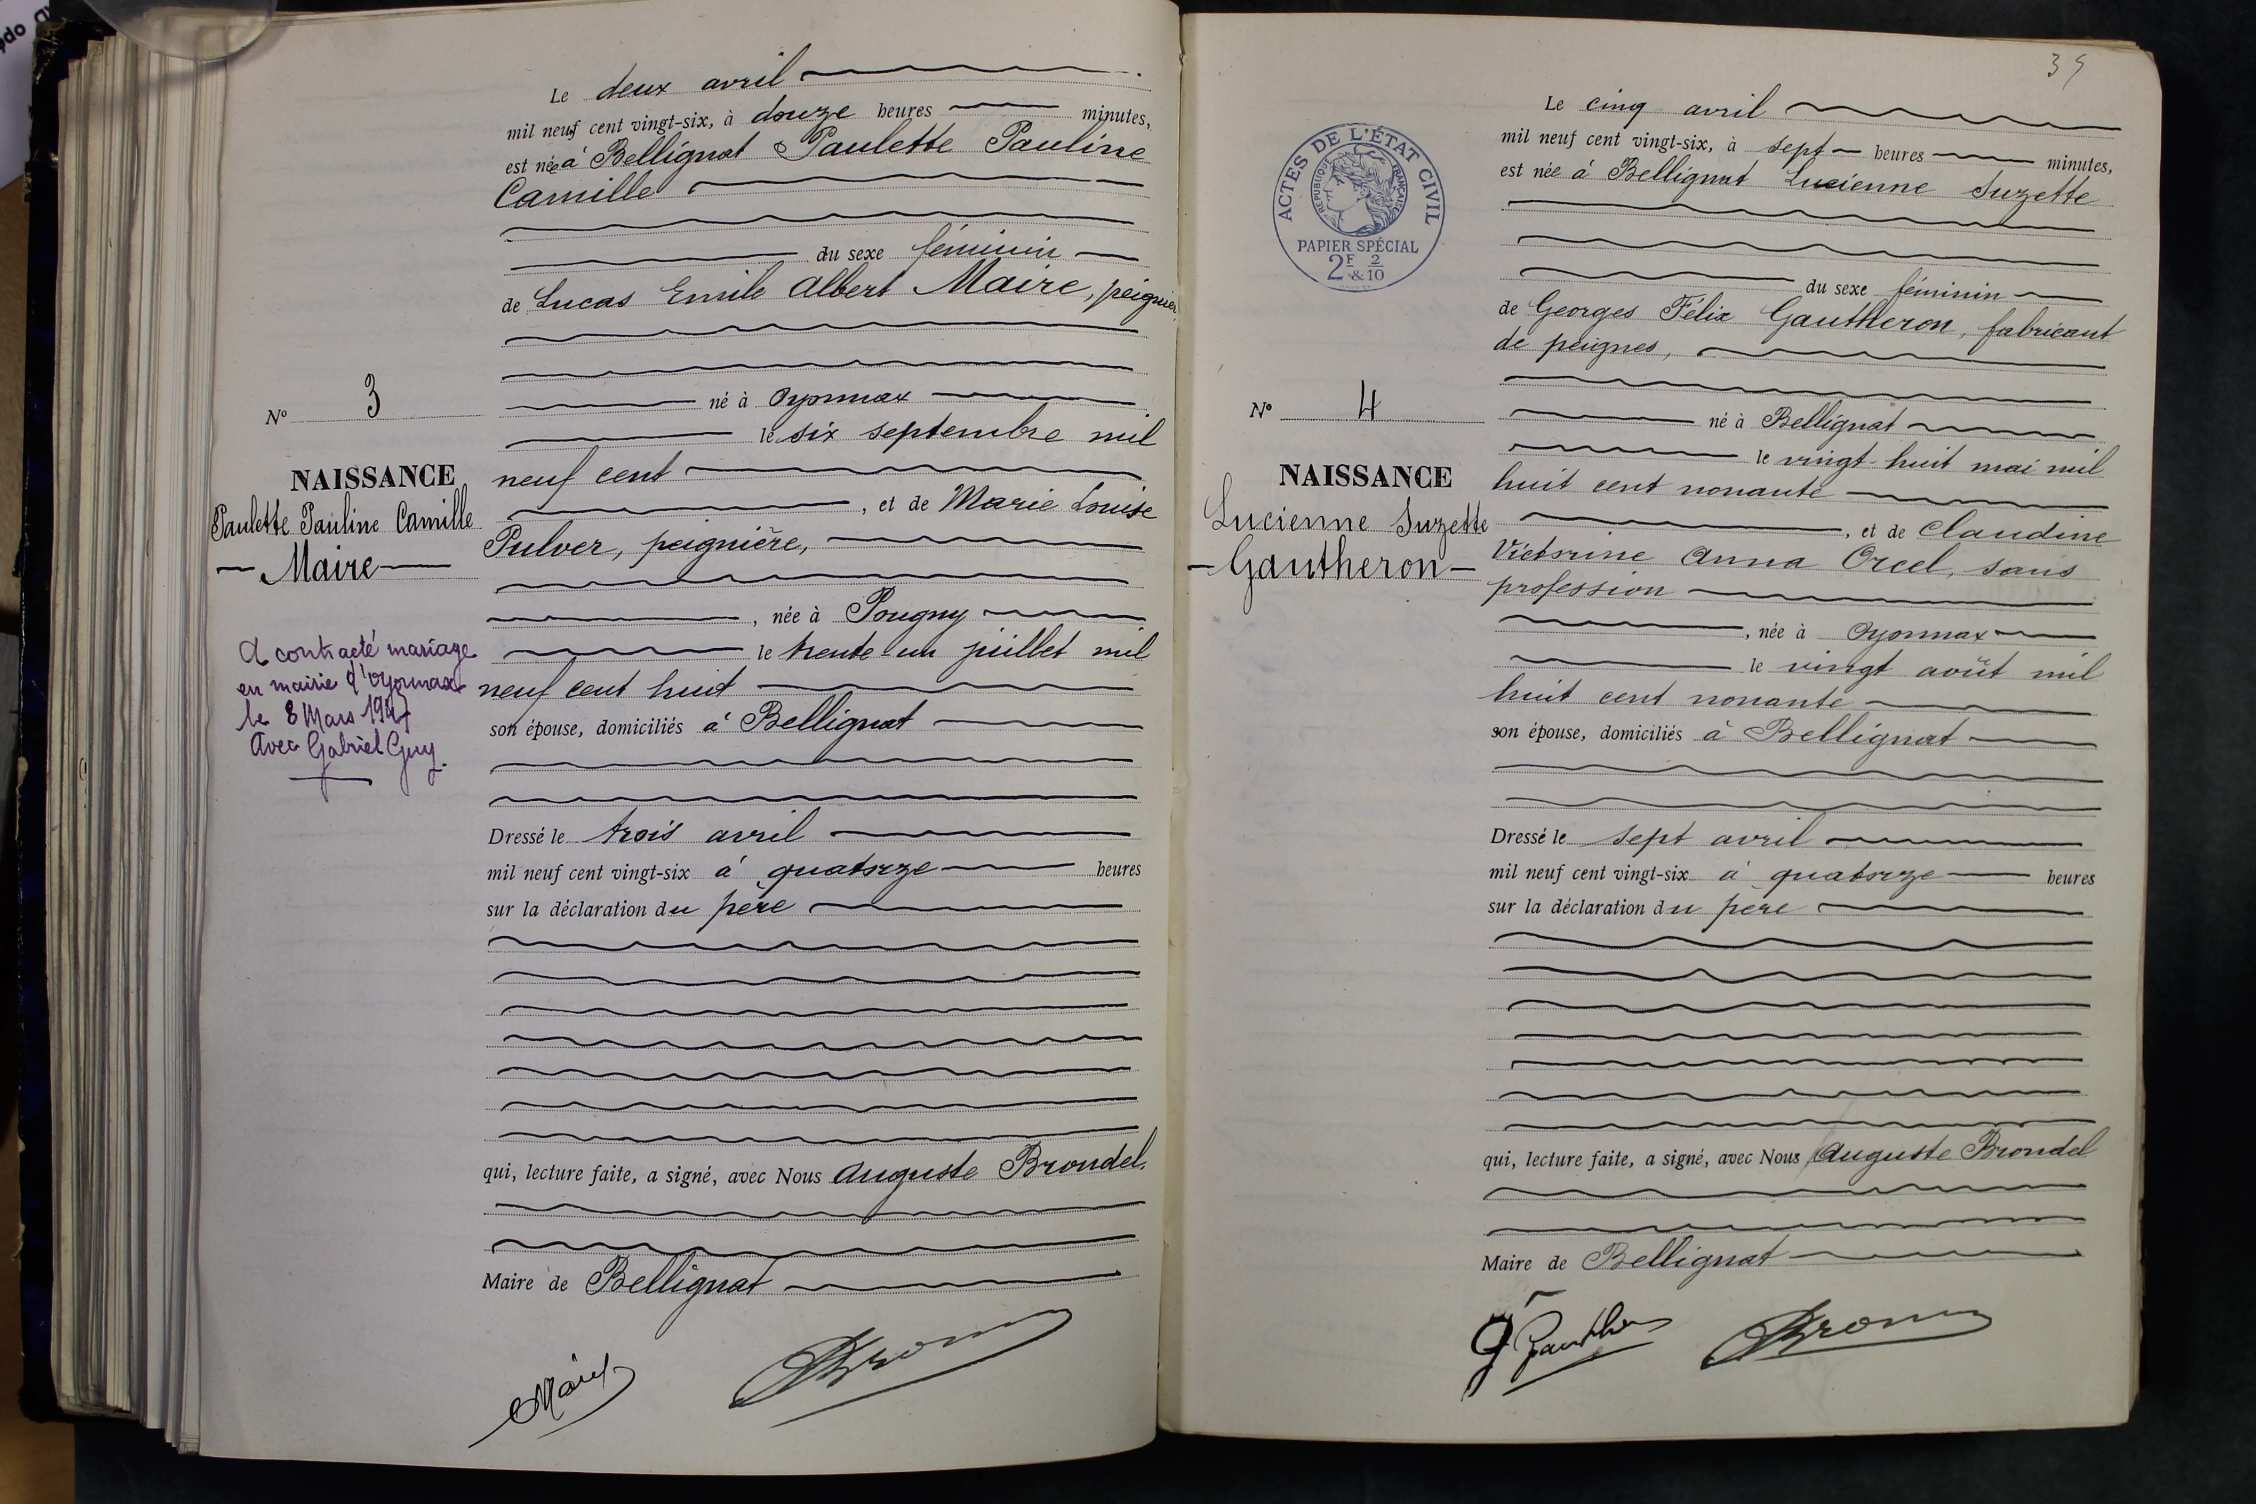 Le deux avril
mil neuf cent vingt-six, à douze heures minutes,
est née à Bellignat Paulette Pauline
Camille
du sexe féminin
de Lucas Emile Albert Maire, peignier,
né à Oyonnax
le six septembre mil
neuf cent
, et de Marie Louise
Pulver, peignière,
, née à Pougny
le trente-un juillet mil
neuf cent huit
son épouse, domiciliés à Bellignat
Dressé le trois avril
mil neuf cent vingt-six à quatorze heures
sur la déclaration du père
qui, lecture faite, a signé, avec Nous Auguste Brondel.
Maire de Bellignat
N° 3
NAISSANCE
Paulette Pauline Camille
Maire
A contracté mariage
en mairie d'Oyonnax
le 8 Mars 1947
Avec Gabriel Guy.
39
ACTES DE L'ÉTAT CIVIL
RÉPUBLIQUE FRANÇAISE
PAPIER SPÉCIAL
2F & 2/10
Le cinq avril
mil neuf cent vingt-six, à sept heures minutes,
est née à Bellignat Lucienne Suzette
du sexe féminin
de Georges Félix Gautheron, fabricant
de peignes,
né à Bellignat
le vingt-huit mai mil
huit cent nonante
, et de Claudine
Victorine Anna Orcel, sans
profession
, née à Oyonnax
le vingt août mil
huit cent nonante
son épouse, domiciliés à Bellignat
Dressé le sept avril
mil neuf cent vingt-six à quatorze heures
sur la déclaration du père
qui, lecture faite, a signé, avec Nous Auguste Brondel
Maire de Bellignat
N° 4
NAISSANCE
Lucienne Suzette
Gautheron